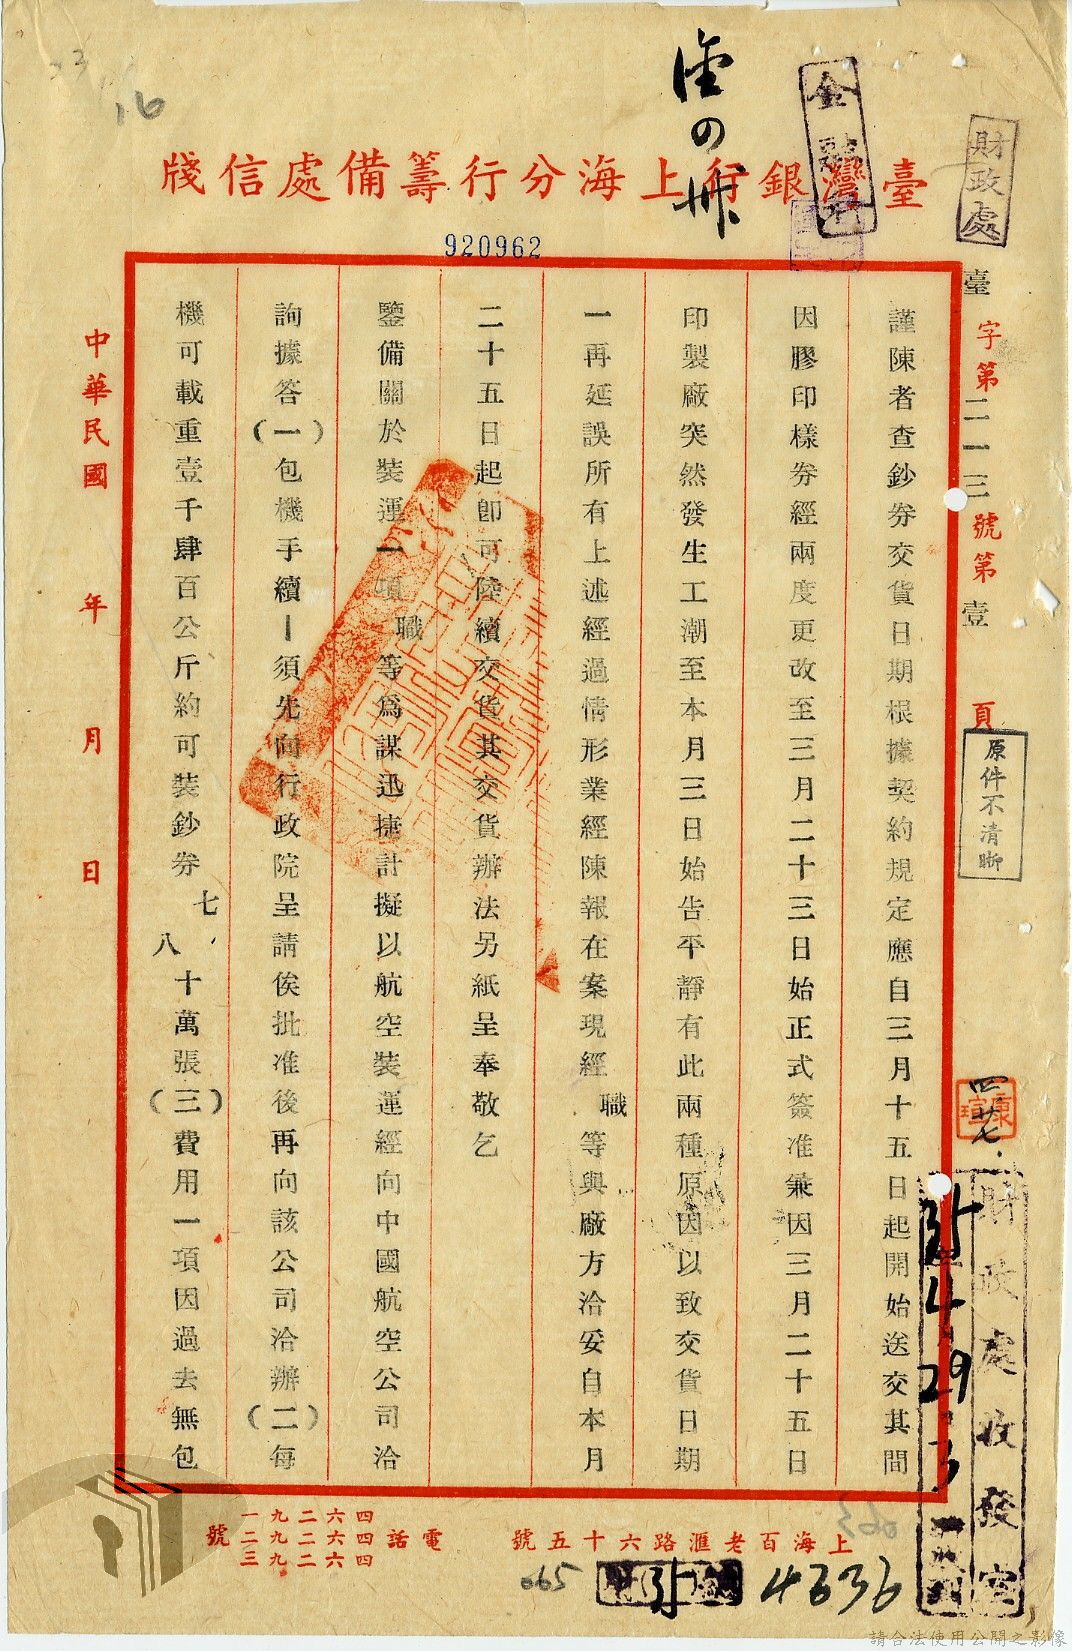 臺灣銀行上海分行籌備處信牋
920962
財政處
金融
16
臺字第二一三號第壹頁
原件不清晰
謹陳者查鈔券交貨日期根據契約規定應自三月十五日起開始送交其間
因膠印樣券經兩度更改至三月二十三日始正式簽准兼因三月二十五日
印製廠突然發生工潮至本月三日始告平靜有此兩種原因以致交貨日期
一再延誤所有上述經過情形業經陳報在案現經職等與廠方洽妥自本月
二十五日起卽可陸續交貨其交貨辦法另紙呈奉敬乞
鑒備關於裝運一項職等爲謀迅捷計擬以航空裝運經向中國航空公司洽
詢據答(一)包機手續—須先向行政院呈請俟批准後再向該公司洽辦(二)每
機可載重壹千肆百公斤約可裝鈔券七、八十萬張(三)費用一項因過去無包
中華民國 年 月 日
四.廿七.
財政處收發室
35 4 29
上海百老滙路六十五號
電話
四六二九一
四六二九二
四六二九三
號
065
35
4336
請合法使用公開之影像